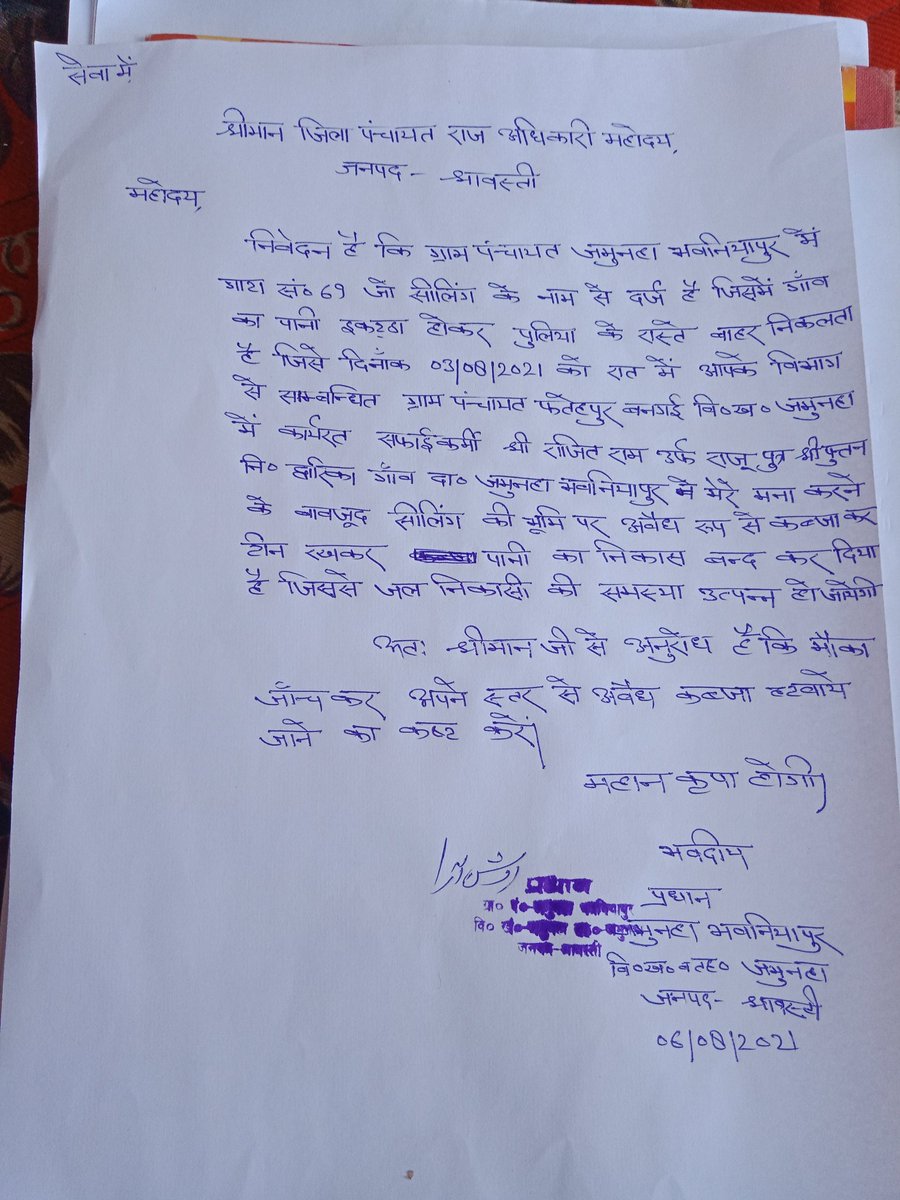 सेवा में
श्रीमान जिला पंचायत राज अधिकारी महोदय,
जनपद - श्रावस्ती
महोदय,
निवेदन है कि ग्राम पंचायत जमुनहा भवनियापुर में
गाटा सं० 69 जो सीलिंग के नाम से दर्ज है जिसमें गाँव
का पानी इकट्ठा होकर पुलिया के रास्ते बाहर निकलता
है जिसे दिनाँक 03/08/2021 को रात में आपके विभाग
से सम्बन्धित ग्राम पंचायत फतेहपुर बनगई वि०ख० जमुनहा
में कार्यरत सफाईकर्मी श्री राजित राम उर्फ राजू पुत्र श्री पुत्तन
नि० गाँव दा० जमुनहा भवनियापुर ने मेरे मना करने
के बावजूद सीलिंग की भूमि पर अवैध रूप से कब्जा कर
टीन रखकर पानी का निकास बन्द कर दिया
है जिससे जल निकासी की समस्या उत्पन्न हो जायेगी
अतः श्रीमान जी से अनुरोध है कि मौका
जाँच कर अपने स्तर से अवैध कब्जा हटवाये
जाने का कष्ट करें।
महान कृपा होगी।
भवदीय
प्रधान
प्रधान
जमुनहा भवनियापुर
वि०ख० व तह० जमुनहा
जनपद-श्रावस्ती
जनपद- श्रावस्ती
06/08/2021